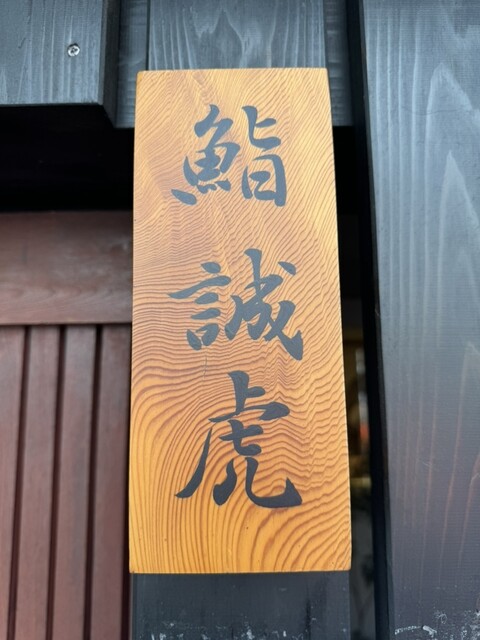 鮨誠虎